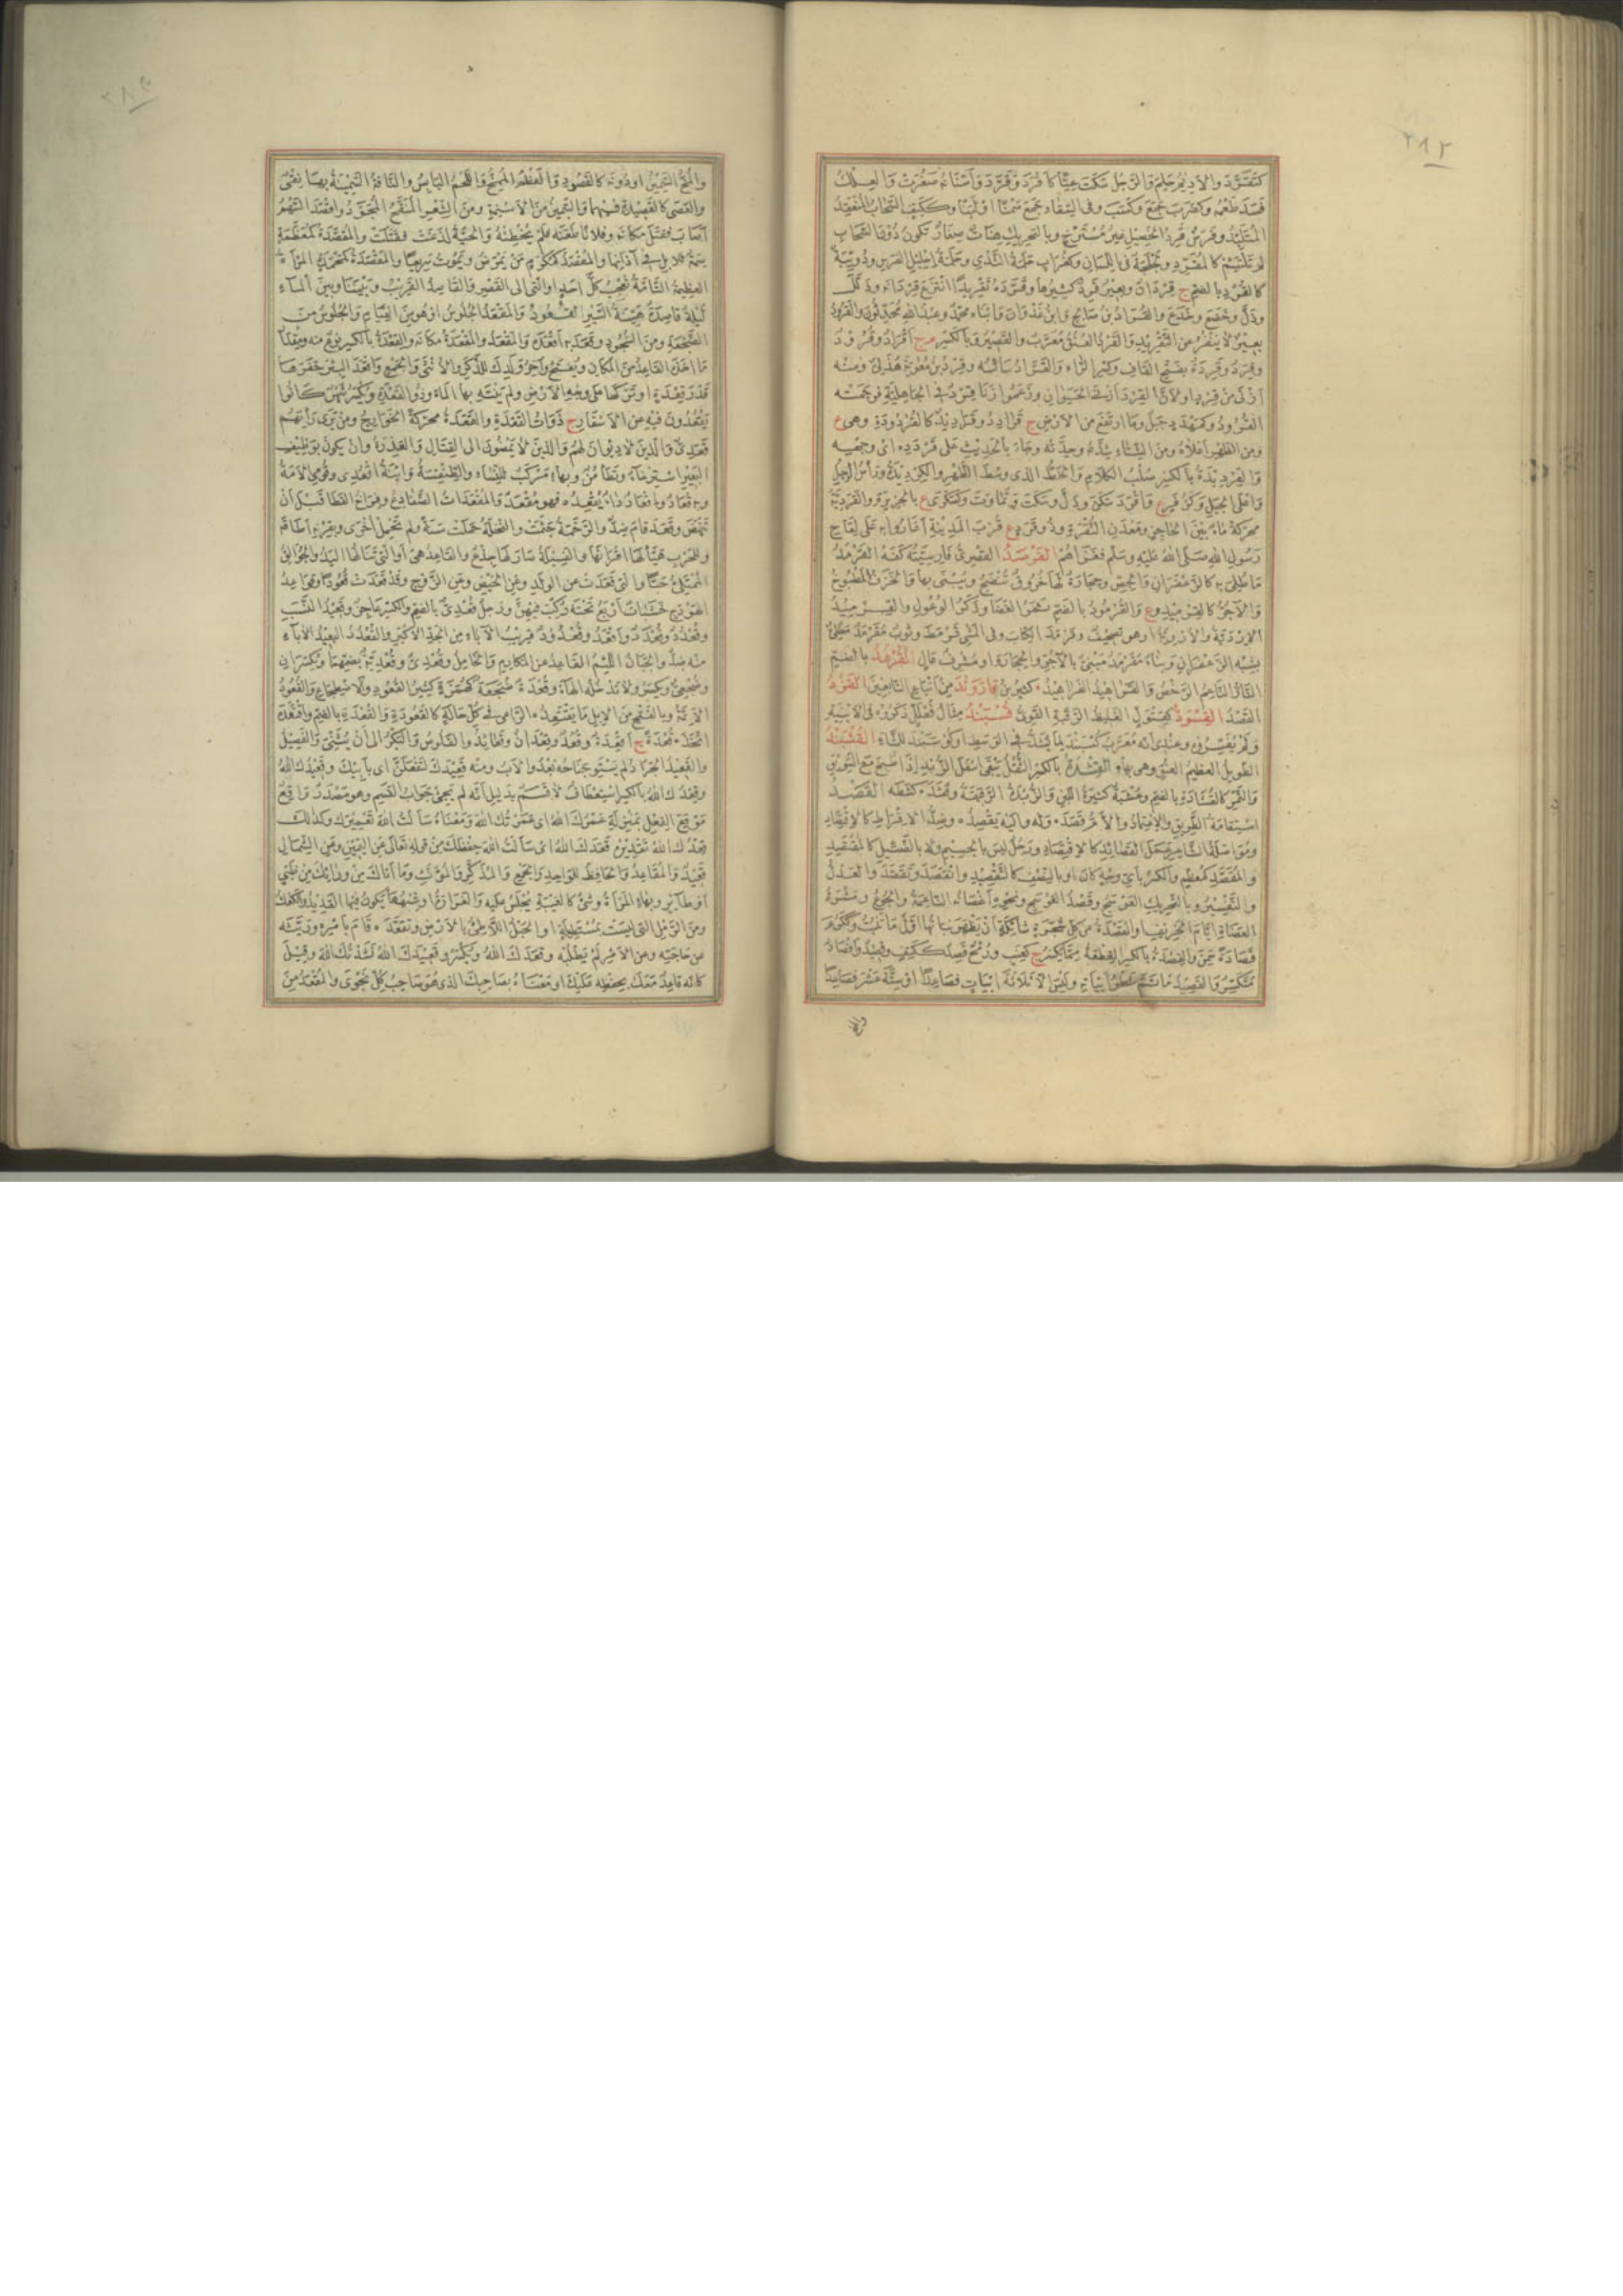 ٢٨٢
كتقرّد والاديم حلم والرجل سكت عيّا كأقرد وقرّد وأسنانه صغرت والعلك
فسد طعمه وكضرب جمع وكسب وفى السقاء جمع سمنا او لبنا وككتف السحاب المنعقد
المتلبد وفرس قرد الخصيل غير مسترخ وبالتحريك هنات صغار تكون دون السحاب
لم تلتئم كالمتقرد ولجلجة فى اللسان وكغراب حلمة الثدى وحلمة احليل الفرس ودويبة
كالقرد بالضم ج قردان وبعير قرد كثيرها وقرّده تقريدا انتزع قردانه وذلّل
وذلّ وخضع وخدع والقرّاد بن صالح وابن غزوان وابناه محمد وعبد الله محدثون والقرود
بعير لا ينفر عن التقريد والقرد العنق معرّب والقصير وبالكسر م ج أقراد وقرود
وقرد وقردة بفتح القاف وكسر الراء والقرّاد سائسه وقرد بن معوية هذلى ومنه
أزنى من قرد او لان القرد أزنى الحيوان وزعموا زنا قرد فى الجاهلية فرجمته
القرود وكمهدد جبل وما ارتفع من الارض ج قرادد وقراديد كالقردودة وهى ع
ومن الظهر أعلاه ومن الشتاء شدته وحدته وجاء بالحديث على قردده اى وجهه
والقرديدة بالكسر صلب الكلام والخط الذى وسط الظهر والكرديدة ورأس الرجل
وأعلى الجبل وكزفر ع وأقرد سكن وذلّ وسكت وتماوت وكسكرى ع بالجزيرة والقردية
محركة ماء بين الحاجر ومعدن النقرة وذو قرد ع قرب المدينة أغاروا به على لقاح
رسول الله صلى الله عليه وسلم فغزاهم القرصد القصرى فارسيته كفه القرمد
ما طلى به كالزعفران والجص وحجارة لها خروق تنضج ويبنى بها والخزف المطبوخ
والآجر كالقرميد وع والقرمود بالضم ثمر الغضا وذكر الوعول والقرميد
الاردبة والاروية او هو تصحيف وقرمد الكتاب وفى المشى قرمط وثوب مقرمد مطلىّ
بشبه الزعفران وبناء مقرمد مبنى بالآجر والحجارة او مشرف عال القرهد بالضم
التارّ الناعم الرخص والقراهيد الفراهيد كثير بن قاروند من أتباع التابعين القزد
القصد القسود كقثول الغليظ الرقبة القوى قسبند مثال فعللل ذكروه فى الابنية
ولم يفسر وعندى انه معرّب كستبند لما يشد فى الوسط او كوسبند للشاء القشبند
الطويل العظيم العنق وهى بهاء القشدة بالكسر الثفل يبقى اسفل الزبد إذا طبخ مع السويق
والتمر كالقشادة بالضم وعشبة كثيرة اللبن والزبدة الرقيقة وقشده كشطه القصد
استقامة الطريق والاعتماد والأم قصده وله واليه يقصده وضدّ الافراط كالاقتصاد
ومواصلة الشاعر عمل القصائد كالاقتصاد ورجل ليس بالجسيم ولا بالضئيل كالمقتصد
والمقصّد كمعظم والكسر باىّ وجه كان او بالنصف كالتقصيد وانقصد وتقصد والعدل
والتقسير وبالتحريك العوسج وقصد العوسج ونحوه أغصانه الناعمة والجوع ومشرة
العضاه أيام الخريف والقصدة من كل شجرة شائكة أن يظهر نباتها اول ما تنبت وككرم
قصادة سمن والقصدة بالكسر القطعة مما يكسر ج كعنب ورمح قصد ككتف وقصيد وأقصاد
متكسر والقصيد ما تمّ شطر أبياته وليس الا ثلاثة ابيات فصاعدا او ستة عشر فصاعدا
والمخ
٢٨٣
والمخ السمين او دونه كالقصود والعظم الممخ واللحم اليابس والناقة السمينة بها نقى
والعصى كالقصيدة فيهما والسمين من الاسنمة ومن الشعر المنقح المجود وأقصد السهم
أصاب فقتل مكانه وفلانا طعنه فلم يخطئه والحية لدغت فقتلت والمقصّدة كمعظمة
سمة للابل فى آذانها والمقصد كمكرم من يمرض ويموت سريعا والمقصدة كمحمدة المرأة
العظيمة التامة تعجب كل احد او التى الى القصر والقاصد القريب وبيننا وبين الماء
ليلة قاصدة هينة السير القعود والمقعد الجلوس او هو من القيام والجلوس من
الضجعة ومن السجود وقعد به أقعده والمقعد والمقعدة مكانه والقعدة بالكسر نوع منه ومقدار
ما أخذه القاعد من المكان ويفتح وآخر ولدك للذكر والانثى والجمع وأقعد البئر حفرها
قدر قعدة او تركها على وجه الارض ولم ينته بها الماء وذو القعدة ويكسر شهر كانوا
يقعدون فيه عن الاسفار ج ذوات القعدة والقعدة محركة الخوارج ومن يرى رأيهم
قعدىّ والذين لا ديوان لهم والذين لا يمضون الى القتال والعذرة وان يكون بوظيف
البعير استرخاء وتطامن وبهاء مركب للنساء والطنفسة وابنة اقعدى وقومى الامة
وبه قعاد واقعاد داء يقعده فهو مقعد والمقعدات الضفادع وفراخ القطا قبل أن
تنهض وقعد قام ضدّ والرخمة جثمت والنخلة حملت سنة ولم تحمل أخرى وبقرنه أطاقه
وللحرب هيأ لها اقرانها والفسيلة صار لها جذع والقاعد هى او التى تنالها اليد والجوالق
الممتلئ حبّا والتى قعدت عن الولد وعن الحيض وعن الزوج وقد قعدت قعودا وقواعد
الهودج خشبات أربع تحته ركّب فيهن ورجل قعدىّ بالضم والكسر عاجز وقعيد النسب
وقعدد وقعدد وأقعد وقعدود قريب الآباء من الجد الاكبر والقعدد البعيد الآباء
منه ضدّ والجبان اللئيم القاعد عن المكارم والخامل وقعدىّ وقعدية بضمهما ويكسران
وضجعىّ ويكسر ولا تدخله الهاء وقعدة ضجعة كهمزة كثير القعود والاضطجاع والقعود
الأيمة وبالفتح من الابل ما يقتعده الراعى فى كل حاجة كالقعودة والقعدة بالضم واقتعده
اتخذه قعدة ج أقعدة وقعد وقعدان وقعائد والقلوص والبكر الى أن يثنى والفصيل
والقعيد الجراد لم يستو جناحه بعد والأب ومنه قعيدك لتفعلنّ اى بأبيك وقعيدك الله
وقعدك الله بالكسر استعطاف لا قسم بدليل أنه لم يجئ جواب القسم وهو مصدر واقع
موقع الفعل بمنزلة عمرك الله اى عمرتك الله ومعناه سألت الله تعميرك وكذلك
قعدك الله تقديره قعدتك الله اى سألت الله حفظك من قوله تعالى عن اليمين وعن الشمال
قعيد والمقاعد والحافظ للواحد والجمع والمذكر والمؤنث وما أتاك من ورائك من ظبى
او طائر وبهاء المرأة وشئ كالعيبة يجلس عليه والغرارة او شبهها يكون فيها القديد والكعك
ومن الرمل التى ليست بمستطيلة او الحبل اللاطئ بالارض وتقعده قام بأمره وريّثه
عن حاجته وعن الأمر لم يطلبه وقعدك الله ويكسر وقعيدك الله نشدتك الله وقيل
كأنه قاعد معك يحفظه عليك او معناه بصاحبك الذى هو صاحب كل نجوى والمقعد من